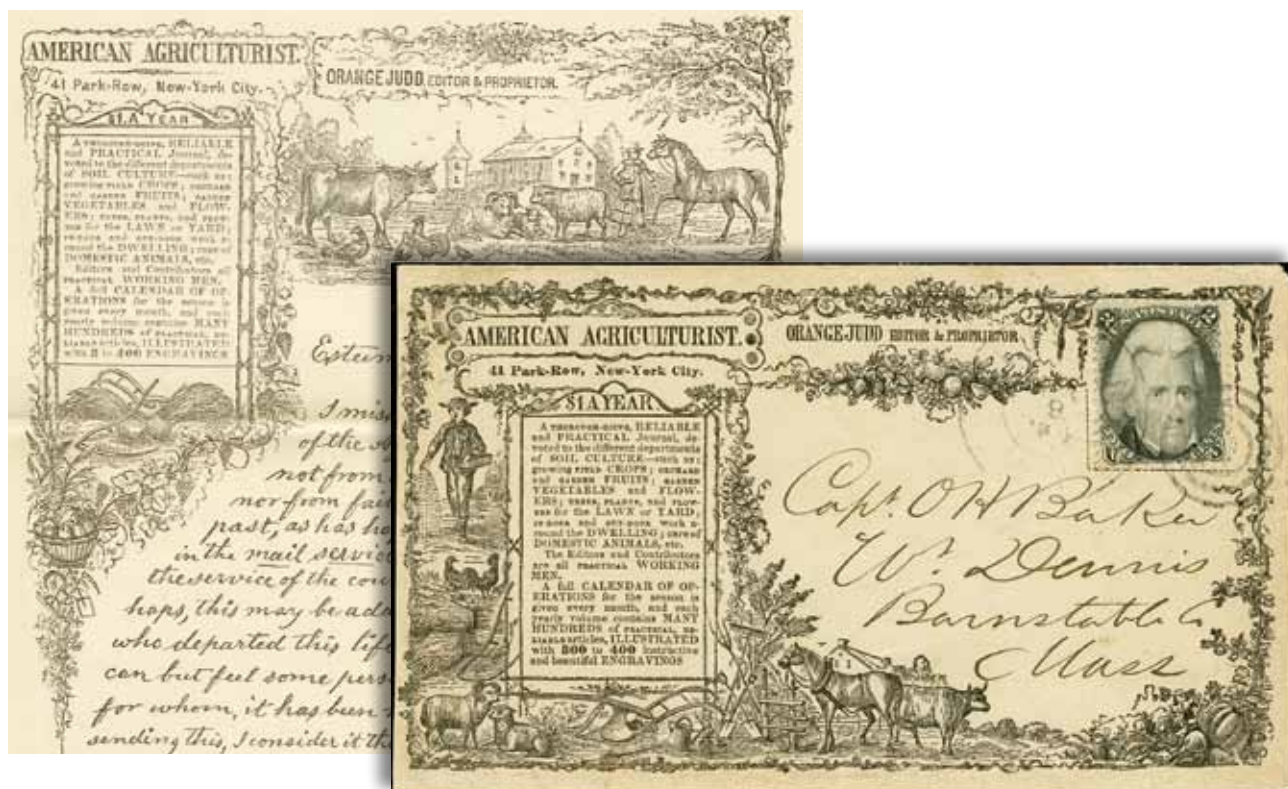 AMERICAN AGRICULTURIST.
41 Park-Row, New-York City.
ORANGE JUDD, EDITOR & PROPRIETOR.
$1 A YEAR
RELIABLE
and PRACTICAL Journal, de-
voted to the different departments
of SOIL CULTURE—such as:
growing FIELD CROPS; ORCHARD
and GARDEN FRUITS; GARDEN
VEGETABLES and FLOW-
ERS; TREES, PLANTS, and FLOW-
ERS for the LAWN or YARD;
IN-DOOR and OUT-DOOR work a-
round the DWELLING; care of
DOMESTIC ANIMALS, etc.
Editors and Contributors all
PRACTICAL WORKING MEN.
A full CALENDAR OF OP-
ERATIONS for the season is
given every month, and each
yearly volume contains MANY
HUNDREDS of PRACTICAL, RE-
LIABLE articles, ILLUSTRATED
with 400 ENGRAVINGS
Esteem
I miss
of the
not from
nor from fai
past, as has ha
in the mail service
the service of the cou
haps, this may be add
who departed this life
can but feel some pers
for whom, it has been
sending this, I consider it th
AMERICAN AGRICULTURIST.
41 Park-Row, New-York City.
ORANGE JUDD EDITOR & PROPRIETOR
$1 A YEAR.
A THOROUGH-GOING, RELIABLE
and PRACTICAL Journal, de-
voted to the different departments
of SOIL CULTURE—such as:
growing FIELD CROPS; ORCHARD
and GARDEN FRUITS; GARDEN
VEGETABLES and FLOW-
ERS; TREES, PLANTS, and FLOW-
ERS for the LAWN or YARD;
IN-DOOR and OUT-DOOR work a-
round the DWELLING; care of
DOMESTIC ANIMALS, etc.
The Editors and Contributors
are all PRACTICAL WORKING
MEN.
A full CALENDAR OF OP-
ERATIONS for the season is
given every month, and each
yearly volume contains MANY
HUNDREDS of PRACTICAL, RE-
LIABLE articles, ILLUSTRATED
with 300 to 400 instructive
and beautiful ENGRAVINGS
Capt. O H Baker
W. Dennis
Barnstable Co
Mass